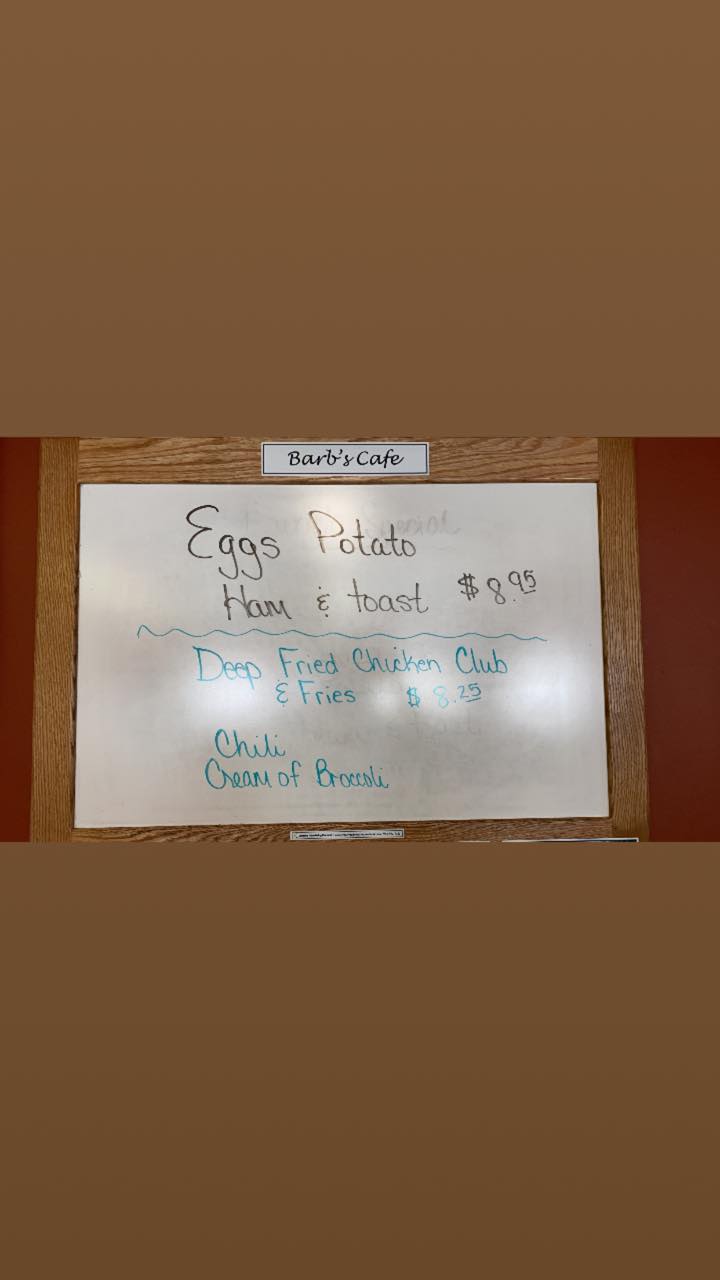 Barb's Cafe
Eggs Potato
Ham & toast $8.95
Deep Fried Chicken Club
& Fries $8.25
Chili
Cream of Broccoli